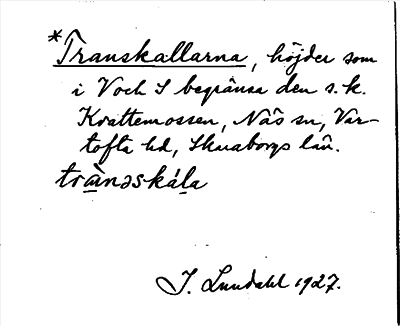 *Transkallarna, höjder som
i V och S begränsa den s.k.
Kvattemossen, Näs sn, Var-
tofta hd, Skaraborgs län.
trànəskála
J. Lundahl 1927.